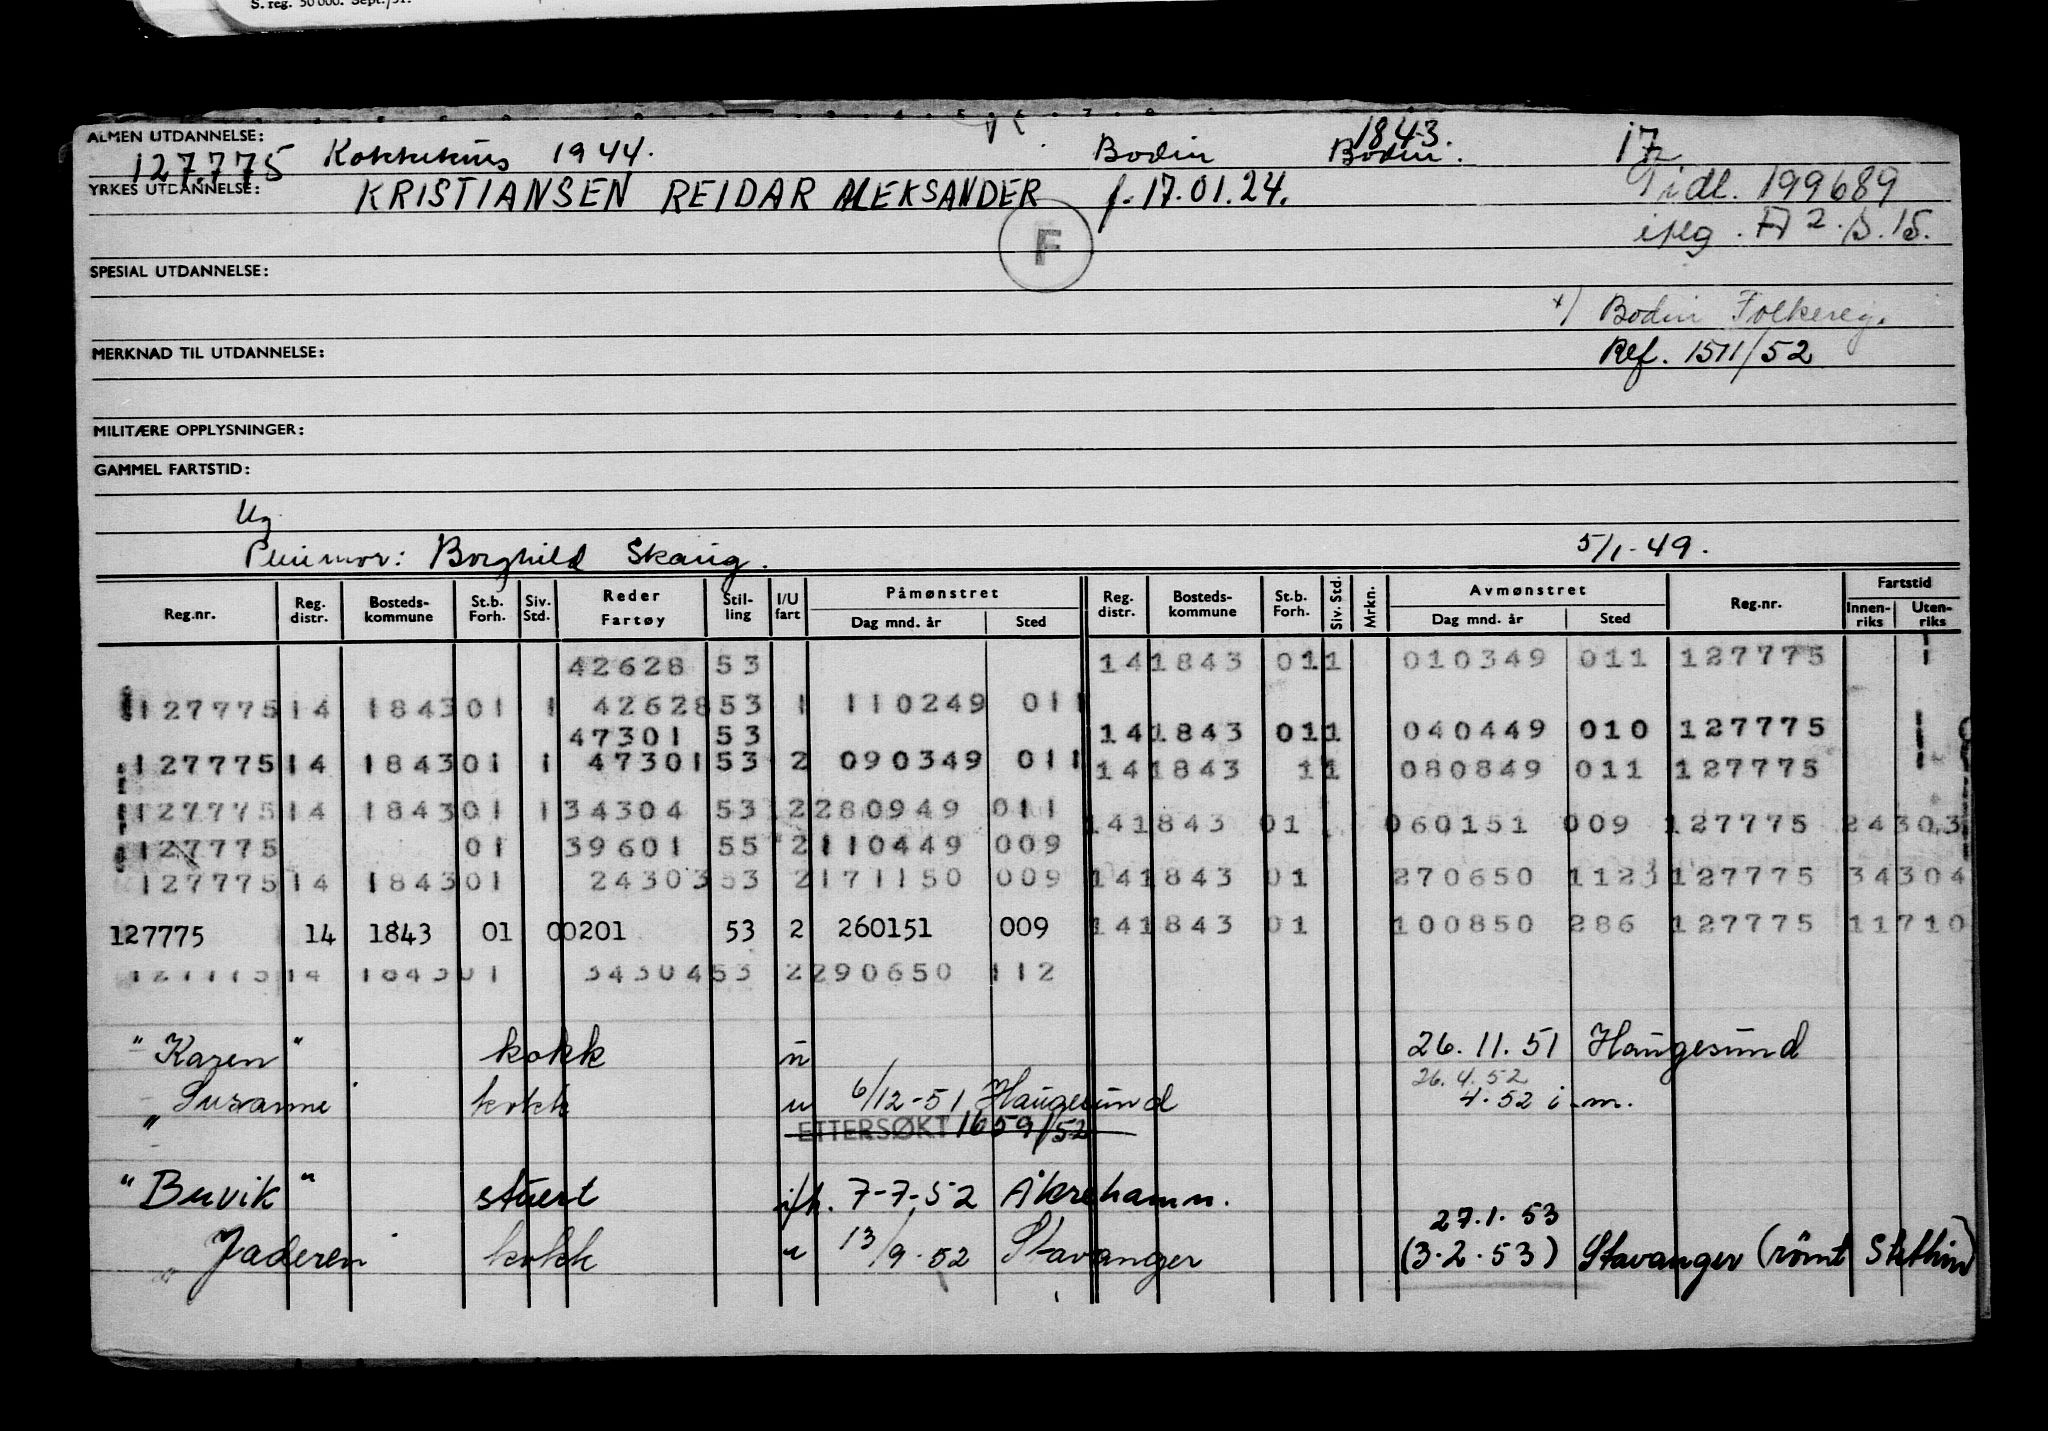 S. reg. 50 000. Sept./51.
ALMEN UTDANNELSE:
127.775 Kokkekurs 1944. Bodin Bodin. 1843. 17
YRKES UTDANNELSE:
KRISTIANSEN REIDAR ALEKSANDER f. 17.01.24. Tidl. 199689
F
SPESIAL UTDANNELSE:
x) Bodin Folkereg.
MERKNAD TIL UTDANNELSE: Ref. 1511/52
MILITÆRE OPPLYSNINGER:
GAMMEL FARTSTID:
Ug
Pleiemor: Borghild Skaug. 5/1-49.
Reg.nr. Reg. distr. Bosteds-kommune St.b. Forh. Siv. Std. Reder Fartøy Stil-ling I/U fart Påmønstret Dag mnd. år Sted Reg. distr. Bosteds-kommune St.b. Forh. Siv. Std. Mrkn. Avmønstret Dag mnd. år Sted Reg.nr. Fartstid Innen-riks Uten-riks
42628 53 14 1843 01 1 010349 011 127775 1
127775 14 1843 01 1 42628 53 1 110249 011
47301 53 14 1843 01 1 040449 010 127775
127775 14 1843 01 1 47301 53 2 090349 011
14 1843 11 080849 011 127775
127775 14 1843 01 1 34304 53 2 280949 011
14 1843 01 060151 009 127775 24303
127775 01 39601 55 2 110449 009
127775 14 1843 01 24303 53 2 171150 009 14 1843 01 270650 112 127775 34304
127775 14 1843 01 00201 53 2 260151 009 14 1843 01 100850 286 127775 11710
127775 14 1843 01 34304 53 2 290650 112
"Karen" kokk u 26.11.51 Haugesund
26.4.52
"Susanne" kokk u 6/12-51 Haugesund 4.52 i.m.
ETTERSØKT 1659/52
"Buvik" stuert i/k. 7-7-52 Åkrehamn.
27.1.53
"Jaderen" kokk u 13/9.52 Stavanger (3.2.53) Stavanger (römt Stettin)